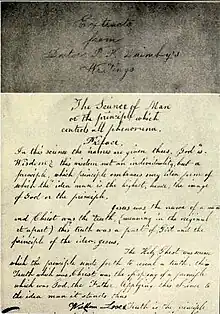 Extracts
from
Doctor P. P. Quimby's
Writings
The Science of Man
or the principle which
controls all phenomena.
Preface.
In this science the names are given thus, God is
Wisdom, this wisdom not an individuality, but a
principle, which principle embraces every idea form of
which the idea man is the highest, hence the image
of God or the principle.
Jesus was the name of a man
and Christ was the truth (meaning in the original
it apart) this truth was a part of God and the
principle of the idea, Jesus.
The Holy Ghost was
which the principle for the to
Truth which was Christ was the of a principle
which was God, the Father. Applying this science to
the idea man it stands thus
Love Truth is the principle